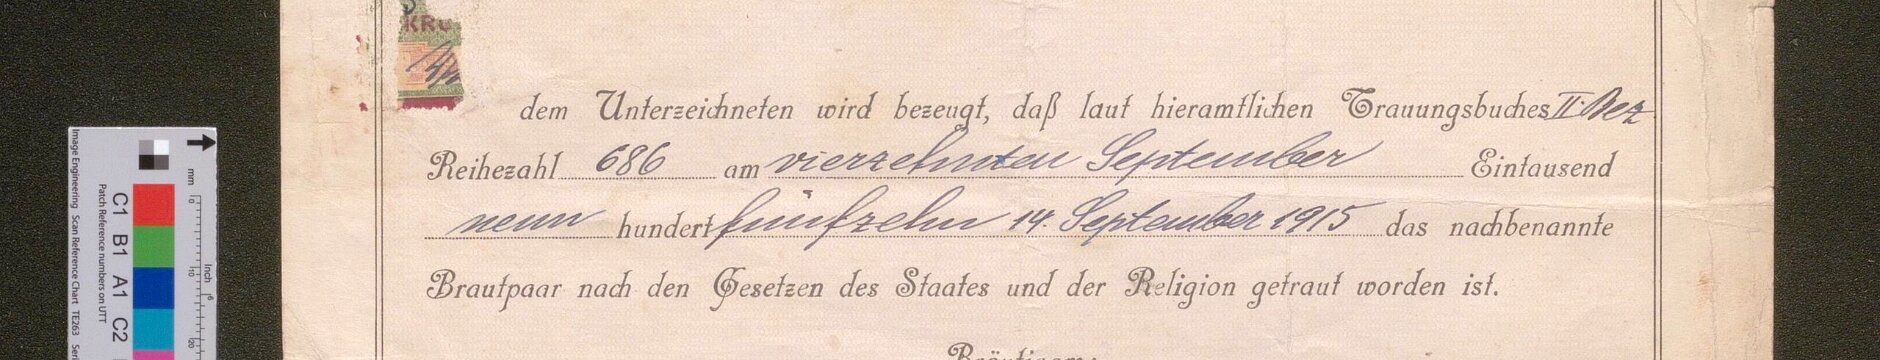 KRO
dem Unterzeichneten wird bezeugt, daß laut hieramtlichen Trauungsbuches II. Bez
Reihezahl 686 am vierzehnten September Eintausend
neun hundert fünfzehn 14. September 1915 das nachbenannte
Brautpaar nach den Gesetzen des Staates und der Religion getraut worden ist.
Bräutigam:
Image Engineering Scan Reference Chart TE263
Patch Reference numbers on UTT
C1 B1 A1 C2
mm 0 10 20
inch